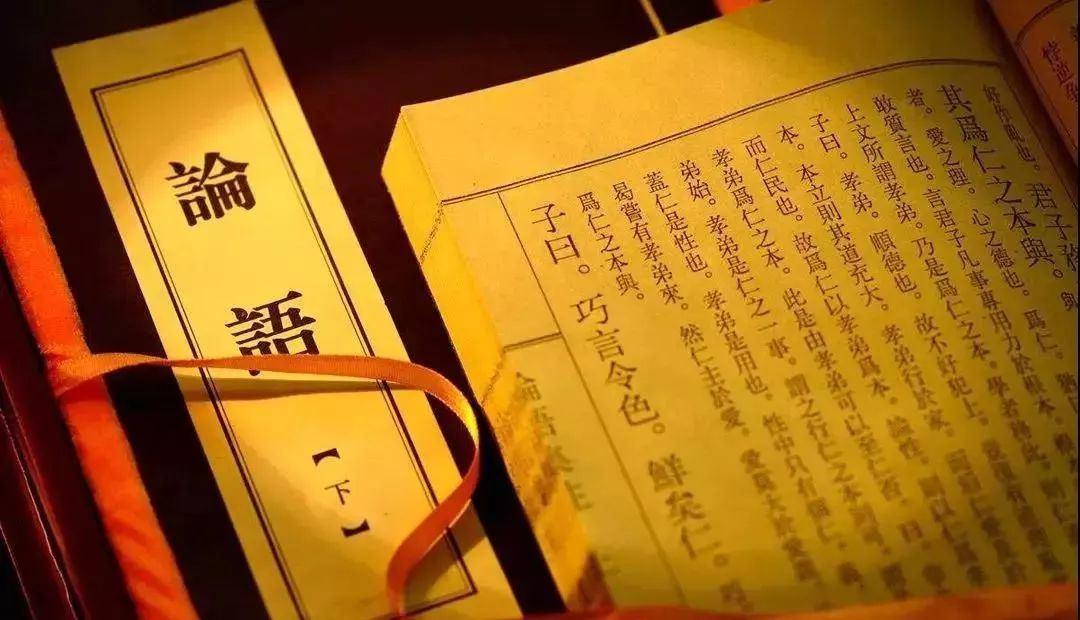 論語
【下】
好作亂也。君子務
其爲仁之本與。與
者。愛之理。心之德也。爲仁。
敢質言也。言君子凡事專用力於根本。
上文所謂孝弟。乃是爲仁之本。學者務此。
子曰。孝弟。順德也。故不好犯上。豈復有
本。本立則其道充大。孝弟行於家。而後仁愛
而仁民也。故爲仁以孝弟爲本。論性。則以仁爲孝
孝弟爲仁之本。此是由孝弟可以至仁否。曰。
弟始。孝弟是仁之一事。謂之行仁之本則可。
蓋仁是性也。孝弟是用也。性中只有個仁。義。
曷嘗有孝弟來。然仁主於愛。愛莫大於愛親。
爲仁之本與。
子曰。巧言令色。鮮矣仁。
論語集註